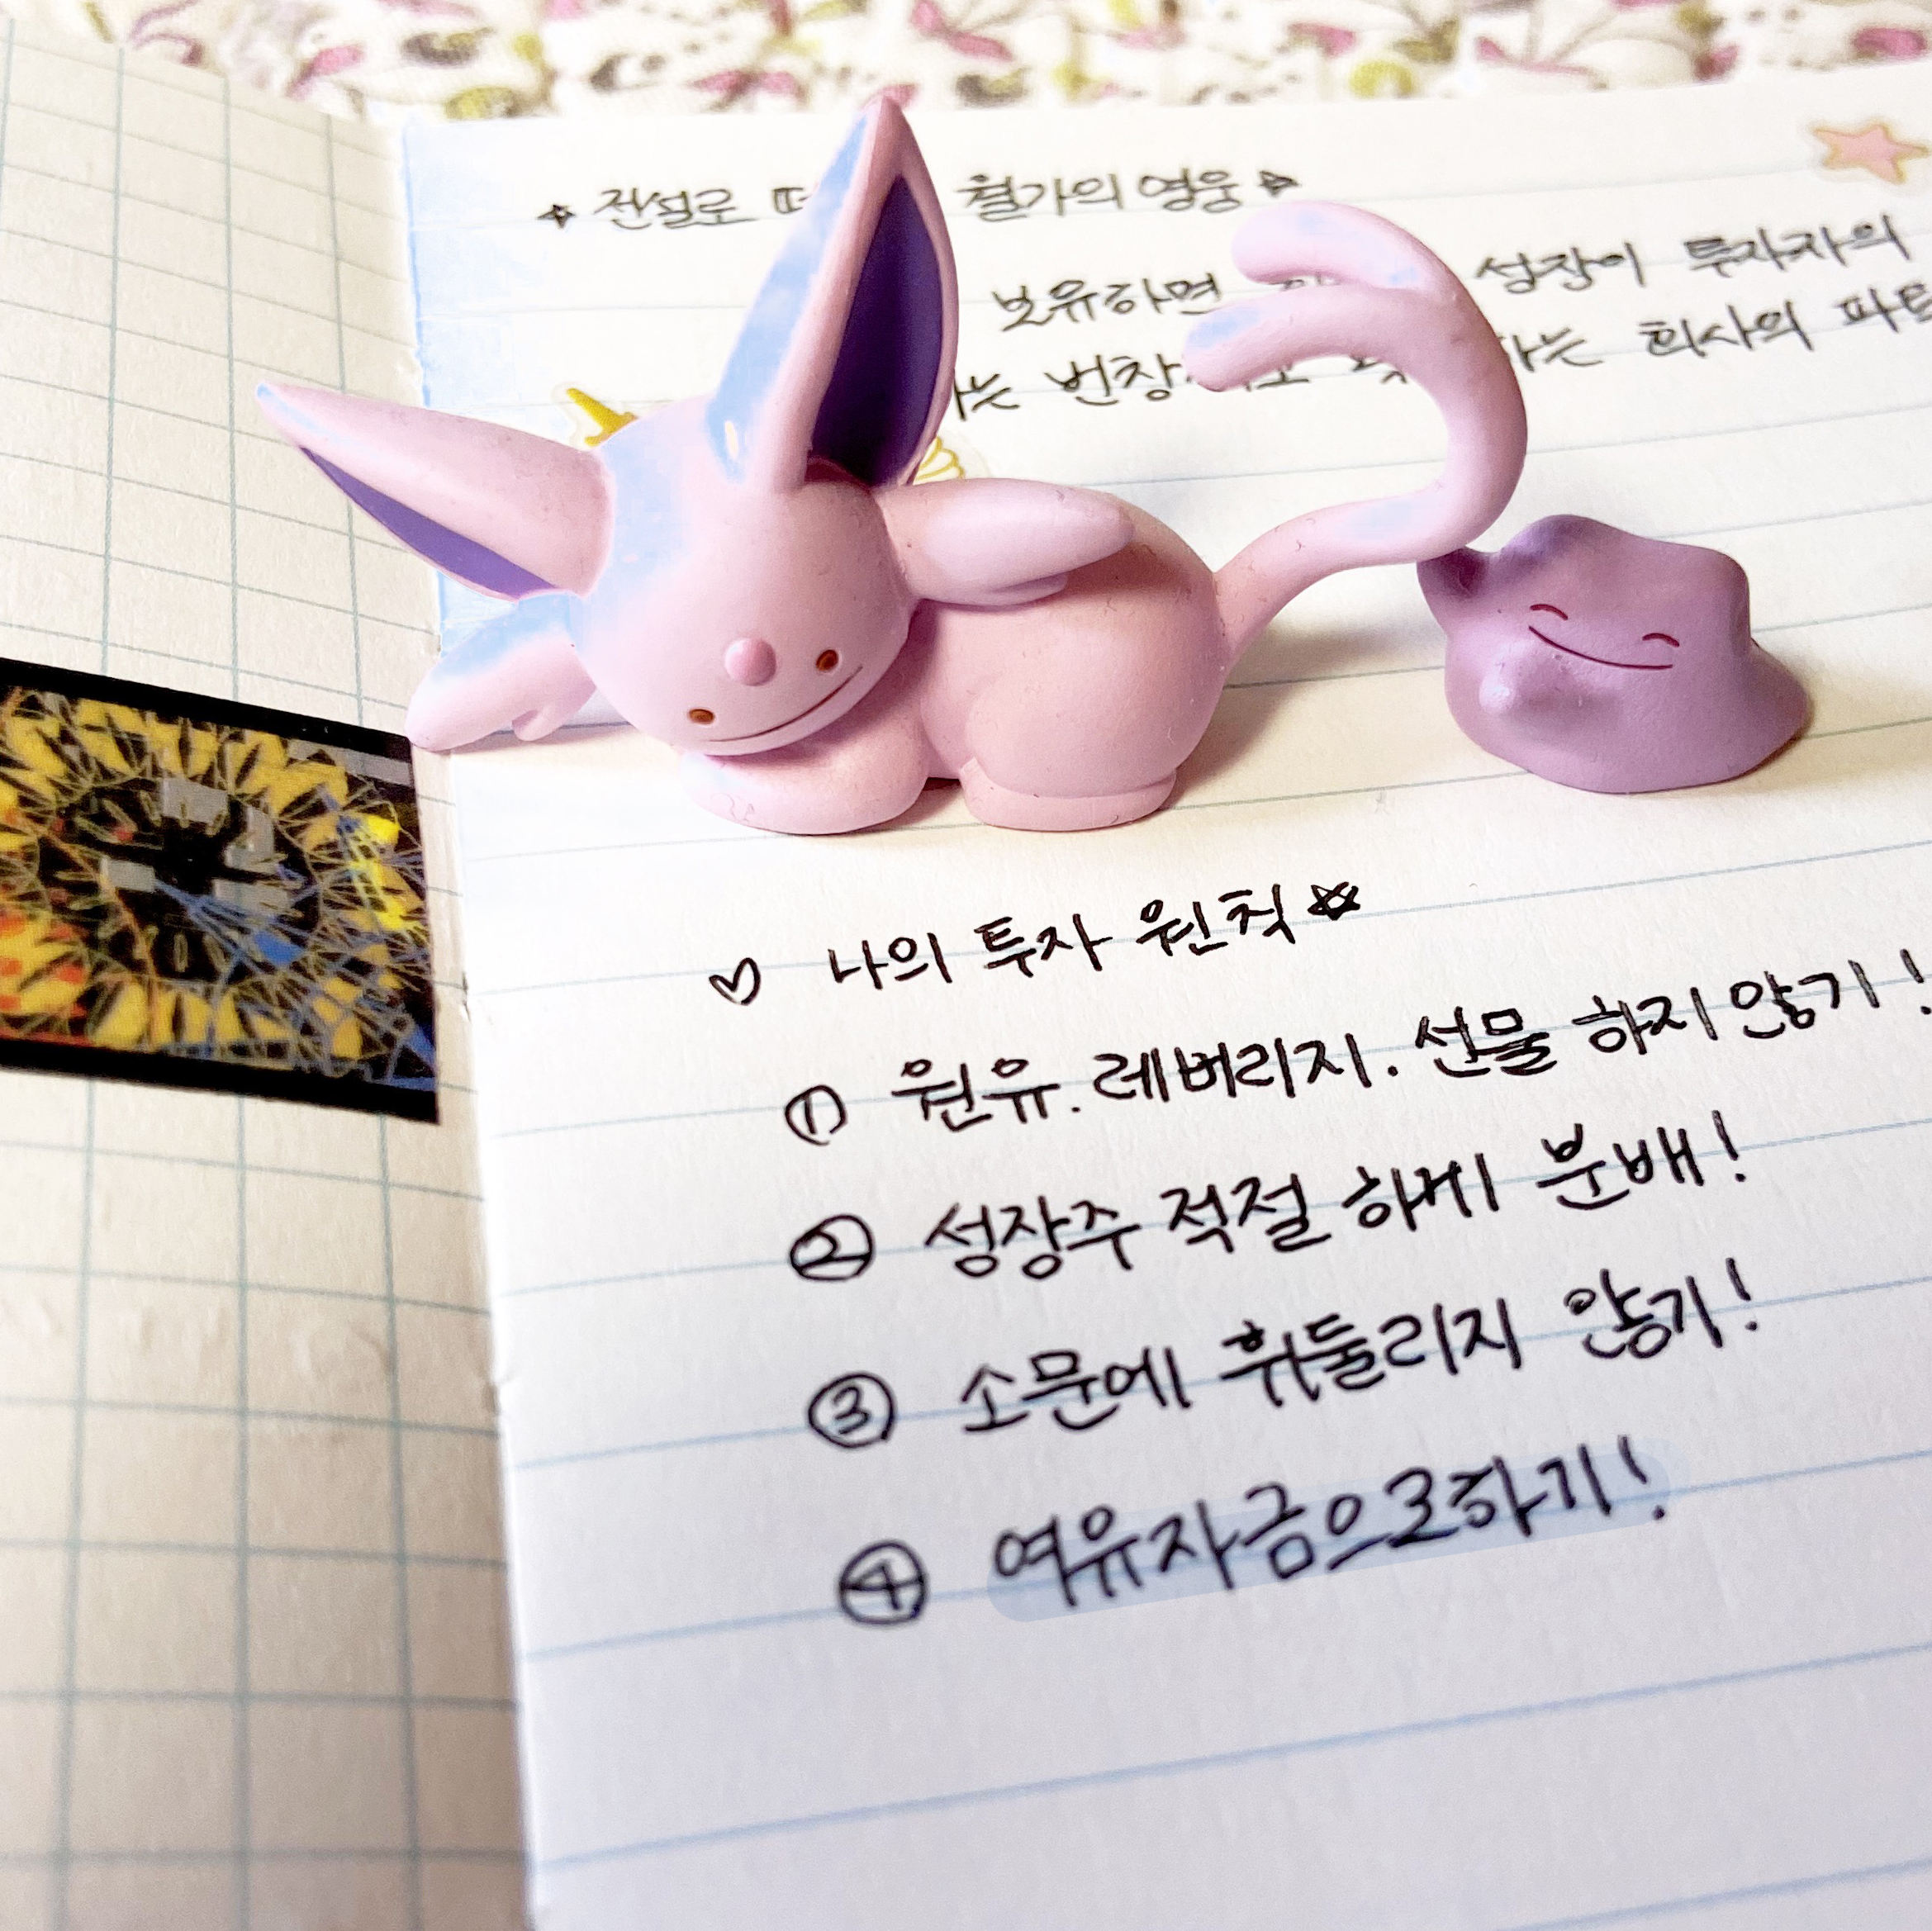 전설로 월가의 영웅
보유하면 성장이 투자자의
는 번창 는 회사의
♡ 나의 투자 원칙 ☆
① 원유. 레버리지. 선물 하지 않기!
② 성장주 적절 하게 분배!
③ 소문에 휘둘리지 않기!
④ 여유자금으로하기!